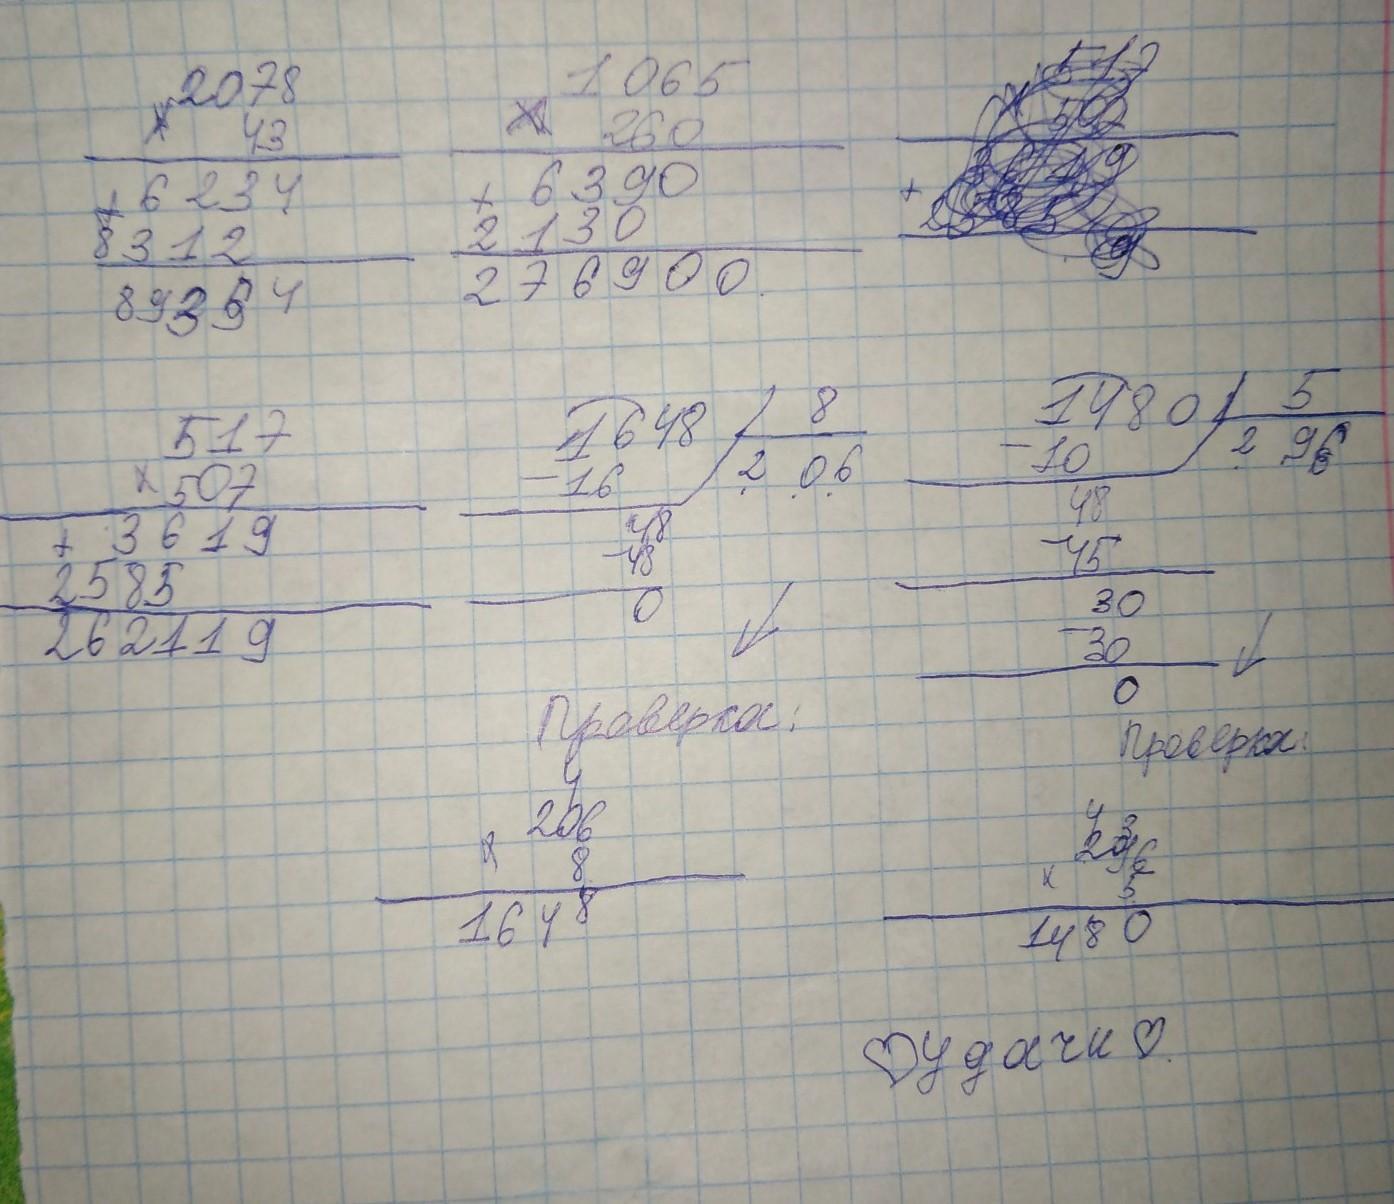 2078
× 43
+ 6234
8312
89354
1065
× 260
+ 6390
2130
276900.
517
× 507
+ 3619
2585
262119
1648 8
- 16 206
48
- 48
0
Проверка:
4
206
× 8
1648
1480 5
- 10 296
48
- 45
30
- 30
0
Проверка:
4 3
296
× 5
1480
♡удачи♡.